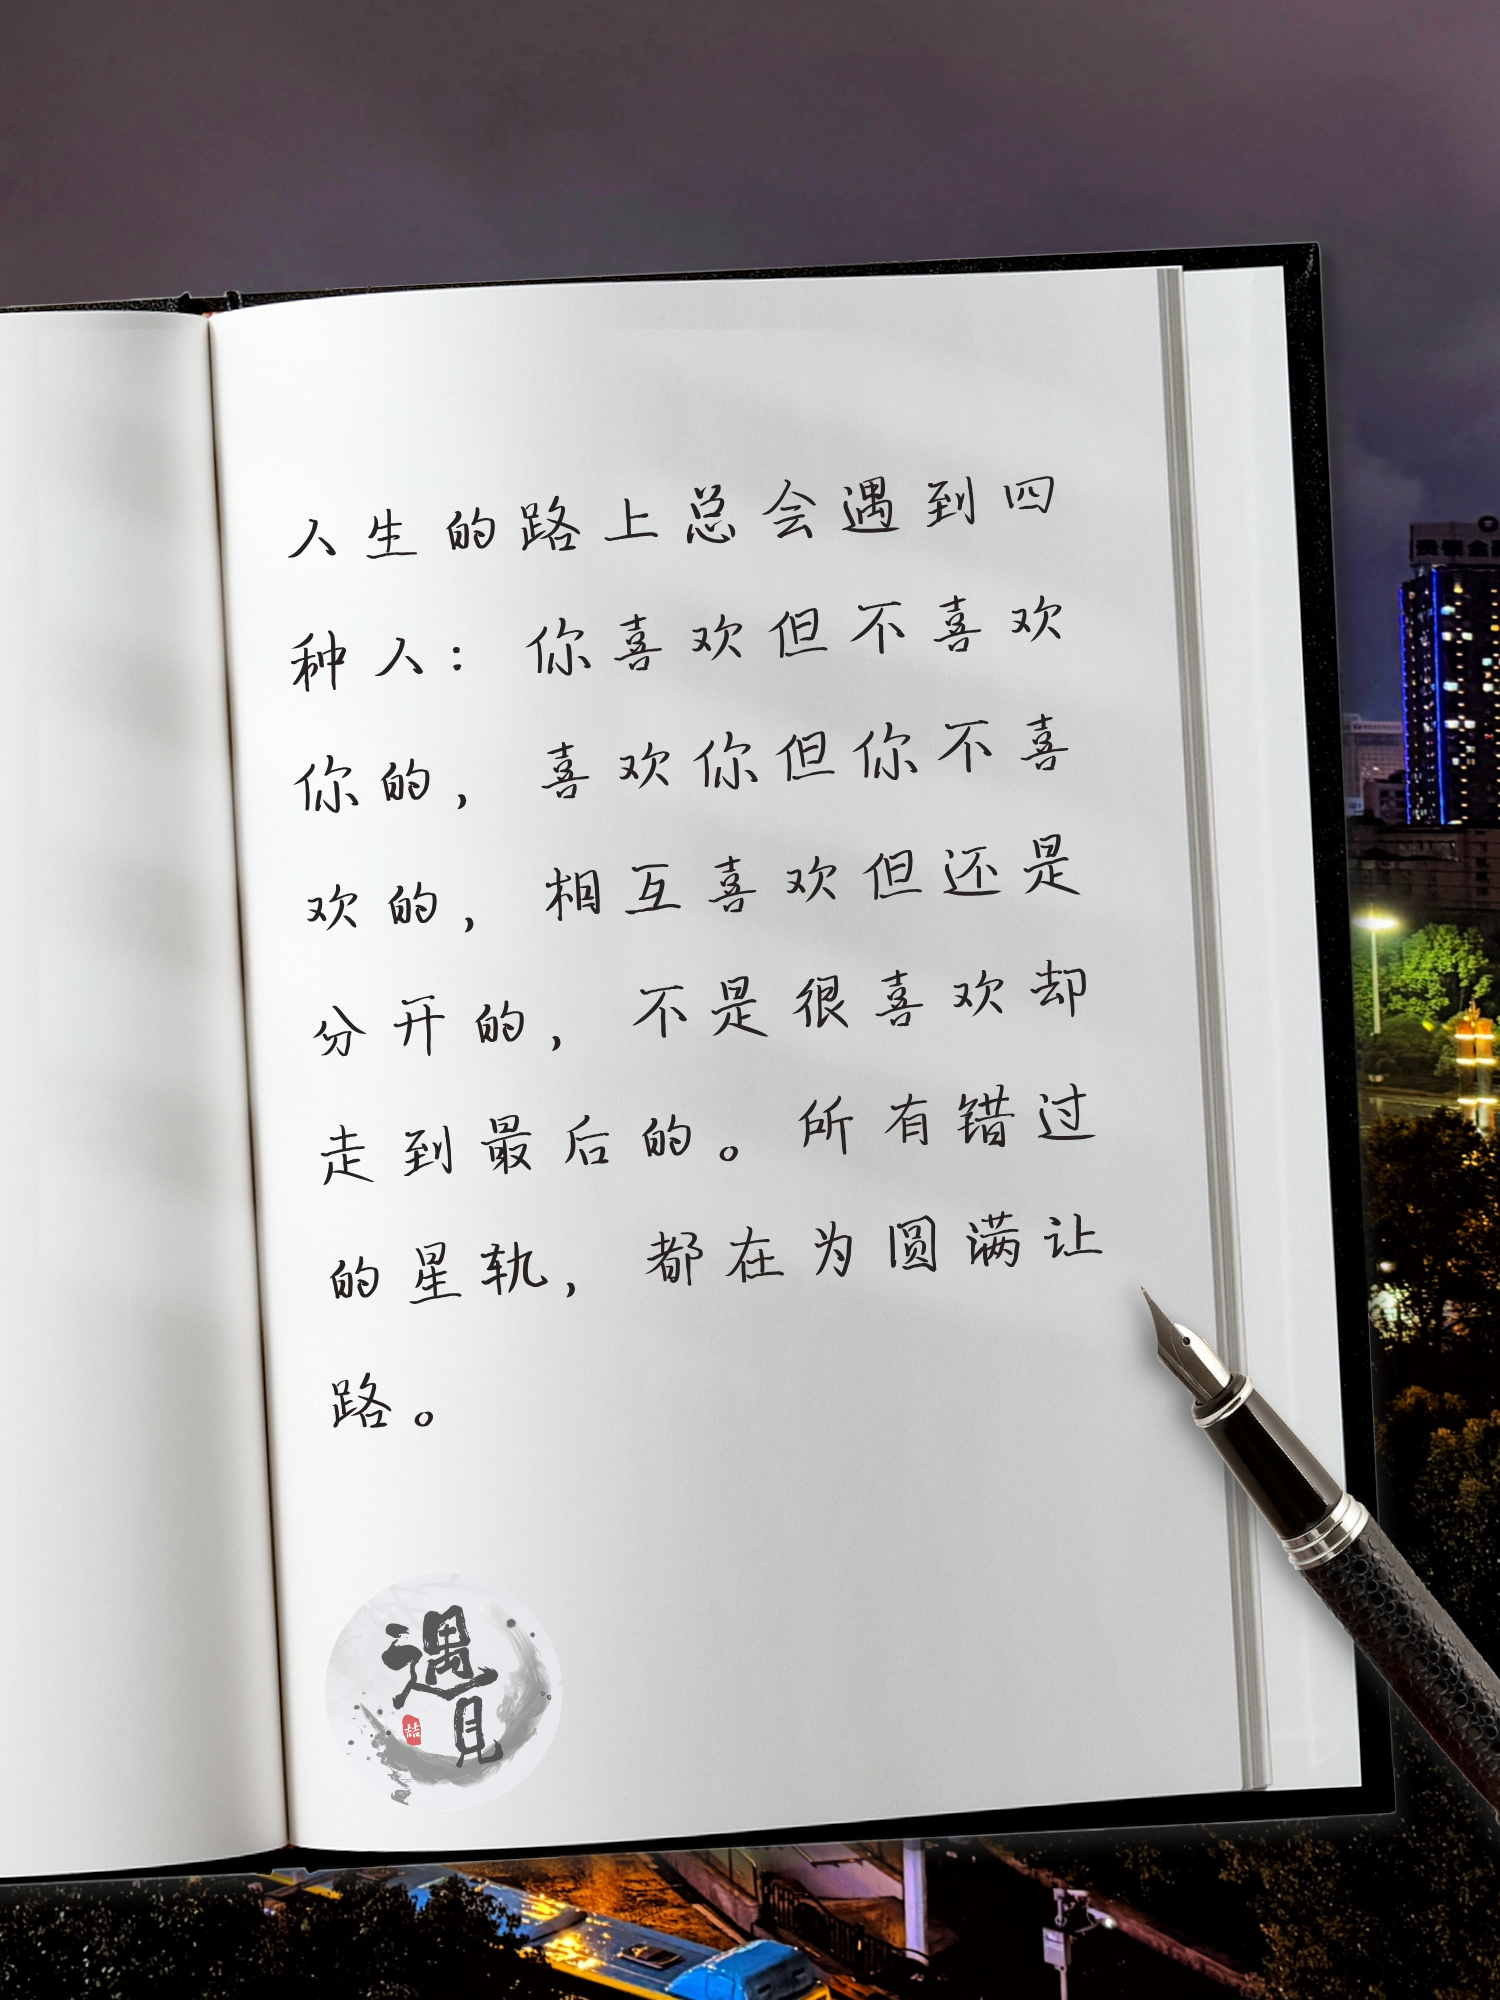 人生的路上总会遇到四
种人：你喜欢但不喜欢
你的，喜欢你但你不喜
欢的，相互喜欢但还是
分开的，不是很喜欢却
走到最后的。所有错过
的星轨，都在为圆满让
路。
遇
見